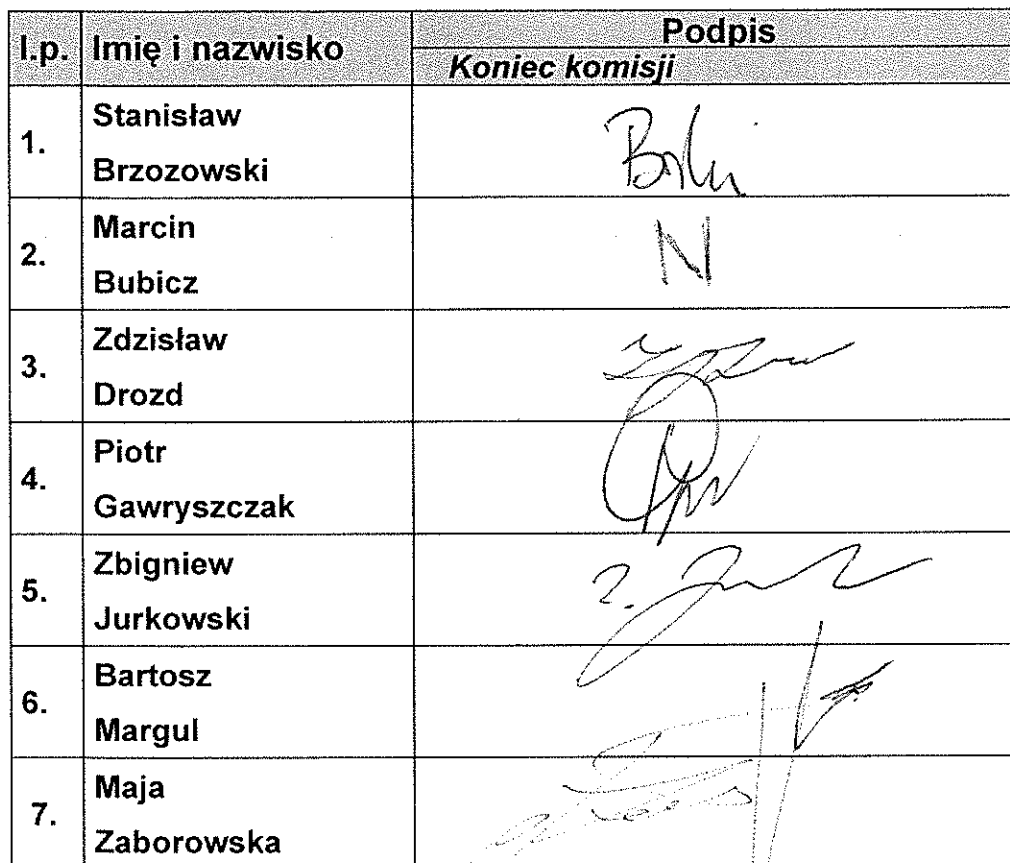 l.p. Imię i nazwisko Podpis
Koniec komisji
1. Stanisław
Brzozowski
2. Marcin
Bubicz
N
3. Zdzisław
Drozd
4. Piotr
Gawryszczak
5. Zbigniew
Jurkowski
6. Bartosz
Margul
7. Maja
Zaborowska